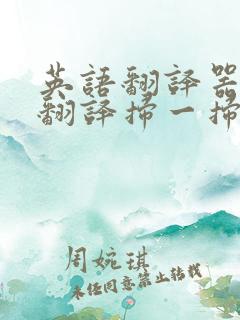 英語翻譯器
翻譯掃一掃
周婉琪
未經同意禁止轉載